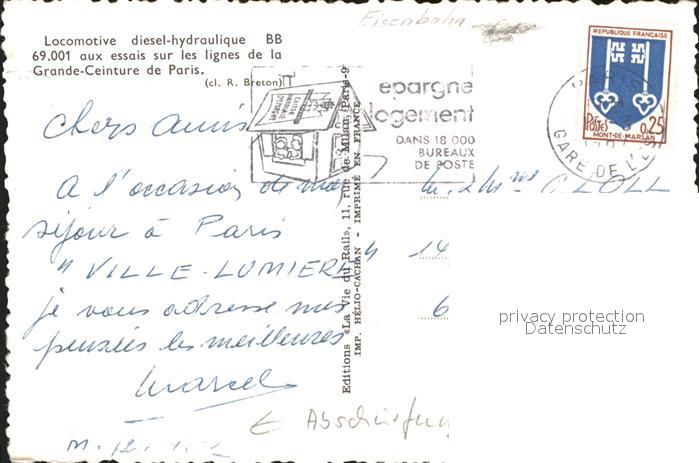 Eisenbahn
Locomotive diesel-hydraulique BB
69.001 aux essais sur les lignes de la
Grande-Ceinture de Paris.
(cl. R. Breton)
Chers amis
A l'occasion de mon
séjour à Paris
"VILLE-LUMIERE"
je vous adresse mes
pensées les meilleures
Marcel
Editions «La Vie du Rail», 11, rue de Milan, Paris-9
IMP. HÉLIO-CACHAN - IMPRIMÉ EN FRANCE
epargne
logement
DANS 18 000
BUREAUX
DE POSTE
PARIS
GARE DE L'EST
REPUBLIQUE FRANÇAISE
Postes 0,25
MONT-DE-MARSAN
M. & Mme C. LOLL
14
6
privacy protection
Datenschutz